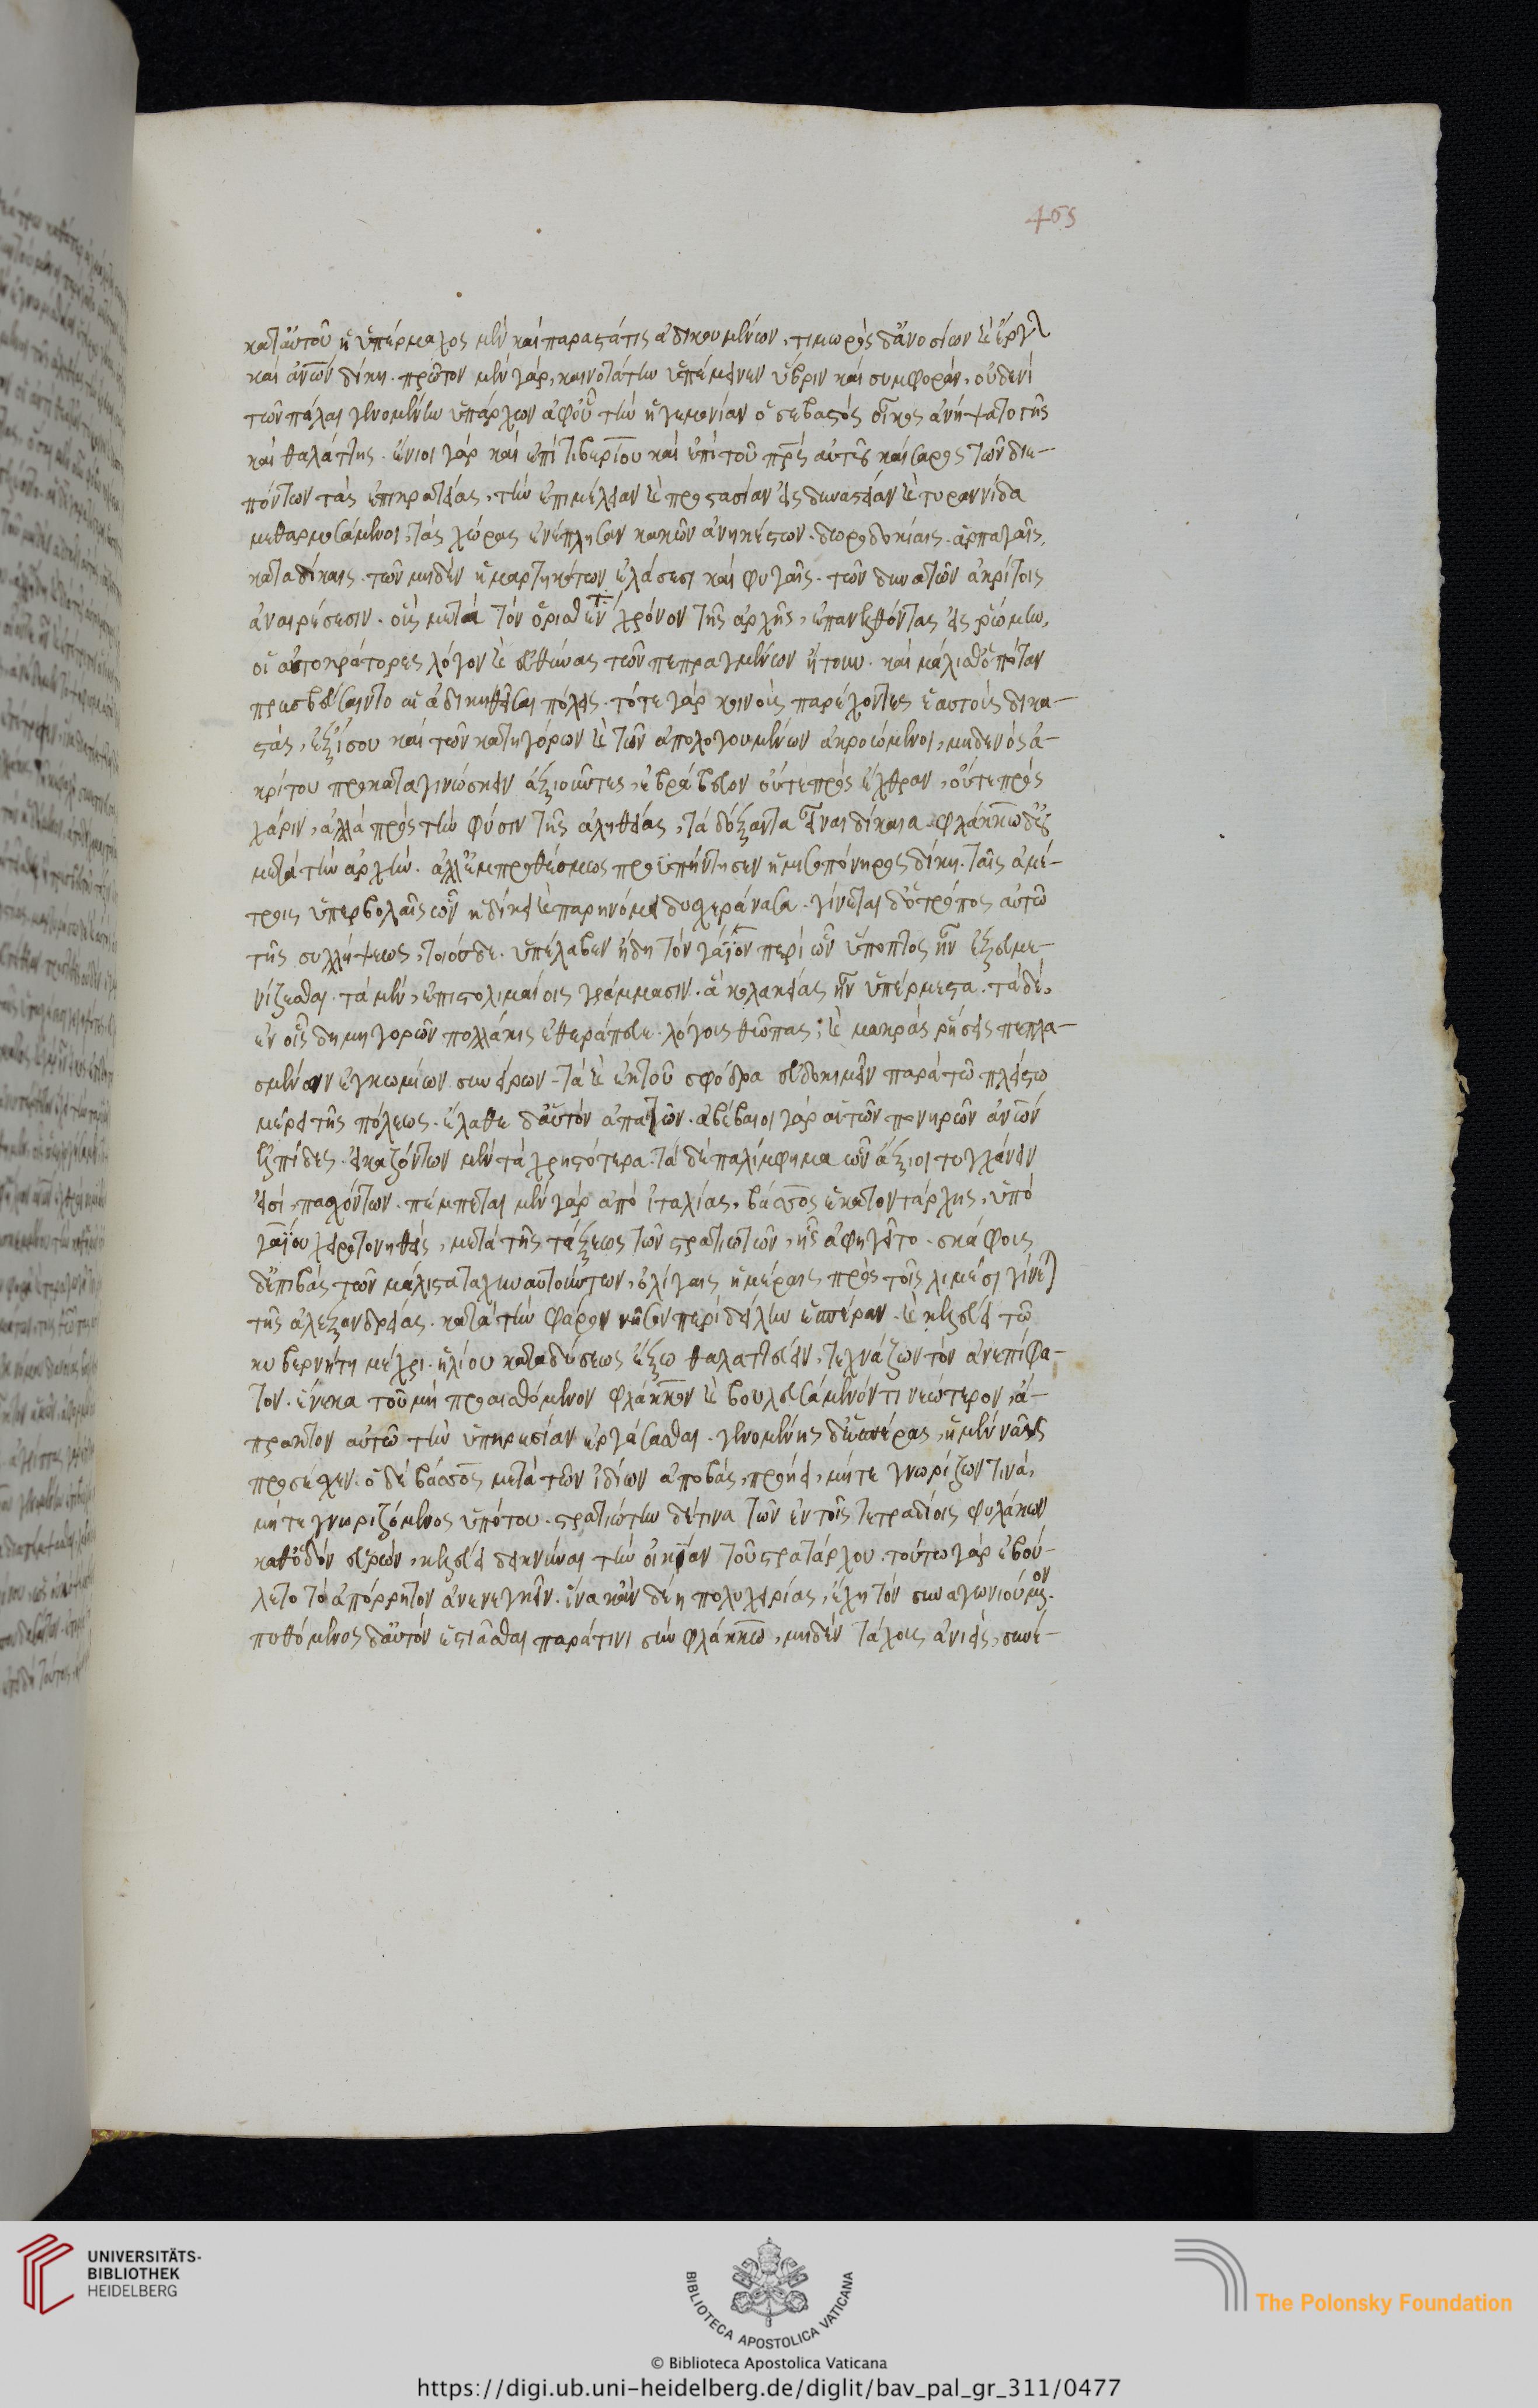 465
κατ' αὐτοῦ ἡ ὑπέρμαχος μὲν καὶ παραστάτις ἀδικουμένων, τιμωρὸς δ' ἀνοσίων καὶ ἔργων
καὶ ἀνων δίκη. πρῶτον μὲν γὰρ, καινοτάτην ὑπέμεινεν ὕβριν καὶ συμφορὰν, οὐδενὶ
τῶν πάλαι γενομένην ὑπάρχων ἀφ' οὗ τὴν ἡγεμονίαν ὁ σεβαστὸς οἶκος ἀνήψατο γῆς
καὶ θαλάττης. ἔνιοι γὰρ καὶ ἐπὶ τιβερίου καὶ ἐπὶ τοῦ πρς αὐτοῦ καίσαρος τῶν διε-
πόντων τὰς ἐπικρατείας, τὴν ἐπιμέλειαν καὶ προστασίαν εἰς δυναστείαν καὶ τυραννίδα
μεθαρμοσάμενοι, τὰς χώρας ἐνέπλησαν κακῶν ἀνηκέστων. δωροδοκίαις. ἁρπαγαῖς,
καταδίκαις. τῶν μηδὲν ἡμαρτηκότων ἐλάσεσι καὶ φυγαῖς. τῶν δυνατῶν ἀκρίτοις
ἀναιρέσεσιν. οὓς μετὰ τὸν ὁρισθέντα χρόνον τῆς ἀρχῆς, ἐπανελθόντας εἰς ῥώμην,
οἱ αὐτοκράτορες λόγον καὶ εὐθύνας τῶν πεπραγμένων ᾔτουν. καὶ μάλισθ' ὁπόταν
πρεσβεύσαιντο αἱ ἀδικηθεῖσαι πόλεις. τότε γὰρ κοινοὺς παρέχοντες ἑαυτοὺς δικα-
στάς, ἐξίσου καὶ τῶν κατηγόρων καὶ τῶν ἀπολογουμένων ἀκροώμενοι, μηδενὸς ἀ-
κρίτου προκαταγινώσκειν ἀξιοῦντες, ἐβράβευον οὔτε πρὸς ἔχθραν, οὔτε πρὸς
χάριν, ἀλλὰ πρὸς τὴν φύσιν τῆς ἀληθείας, τὰ δόξαντα εἶναι δίκαια. φλάκκω δ' οὐ
μετὰ τὴν ἀρχὴν. ἀλλ' ἐμπροθέσμως προυπήντησεν ἡ μισοπόνηρος δίκη. ταῖς ἀμέ-
τροις ὑπερβολαῖς ὧν ἠδίκει καὶ παρηνόμει δυσχεράνασα. γίνεται δ' ὁ τρόπος αὐτῶ
τῆς συλλήψεως, τοιόσδε. ὑπέλαβεν ἤδη τὸν γάϊον περὶ ὧν ὕποπτος ἦν ἐξευμε-
νίζεσθαι. τὰ μὲν, ἐπιστολιμαίοις γράμμασιν. ἃ κολακείας ἦν ὑπέρμεστα. τὰ δέ,
ἐν οἷς δημηγορῶν πολλάκις ἐθεράπευε. λόγοις θῶπας, καὶ μακρὰς ῥήσεις πεπλα-
σμένων ἐγκωμίων συνείρων. τὰ καὶ ἐκ τοῦ σφόδρα εὐδοκιμεῖν παρὰ τῶ πλείστω
μέρει τῆς πόλεως. ἔλαθε δ' αὑτὸν ἀπατῶν. ἀβέβαιοι γὰρ αἱ τῶν πονηρῶν ἀνων
ἐλπίδες. εἰκαζόντων μὲν τὰ χρηστότερα. τὰ δὲ παλίμφημα ὧν ἄξιοι τυγχάνειν
εἰσὶ, παθόντων. πέμπεται μὲν γὰρ ἀπὸ ἰταλίας, βάσσος ἑκατοντάρχης, ὑπὸ
γαΐου χειροτονηθεὶς, μετὰ τῆς τάξεως τῶν στρατιωτῶν, ἧς ἀφηγεῖτο. σκάφους
δ' ἐπιβὰς τῶν μάλιστα ταχυναυτούντων, ὀλίγαις ἡμέραις πρὸς τοῖς λιμέσι γίνεται
τῆς ἀλεξανδρείας. κατὰ τὴν φάρον νῆσον περὶ δείλην ἑσπέραν. καὶ κελεύει τῶ
κυβερνήτη μέχρι ἡλίου καταδύσεως ἔξω θαλαττεύειν, τεχνάζων τὸν ἀνεπίφα-
τον. ἕνεκα τοῦ μὴ προαισθόμενον φλάκκον καὶ βουλευσάμενόν τι νεώτερον, ἄ-
πρακτον αὐτῶ τὴν ὑπηρεσίαν ἐργάσασθαι. γενομένης δ' ἑσπέρας, ἡ μὲν ναῦς
προσέσχεν. ὁ δὲ βάσσος μετὰ τῶν ἰδίων ἀποβὰς, προήει, μήτε γνωρίζων τινά,
μήτε γνωριζόμενος ὑπό του. στρατιώτην δέ τινα τῶν ἐν τοῖς τετραδίοις φυλάκων
καθ' ὁδὸν εὑρὼν, κελεύει δεικνύναι τὴν οἰκίαν τοῦ στρατάρχου. τούτω γὰρ ἐβού-
λετο τὸ ἀπόρρητον ἀνενεγκεῖν. ἵνα κἂν δέη πολυχειρίας, ἔχη τὸν συναγωνιούμενον.
πυθόμενος δ' αὐτὸν ἑστιᾶσθαι παρά τινι σὺν φλάκκω, μηδὲν τάχους ἀνιεὶς, συνέ-
UNIVERSITÄTS-
BIBLIOTHEK
HEIDELBERG
BIBLIOTECA APOSTOLICA VATICANA
The Polonsky Foundation
© Biblioteca Apostolica Vaticana
https://digi.ub.uni-heidelberg.de/diglit/bav_pal_gr_311/0477